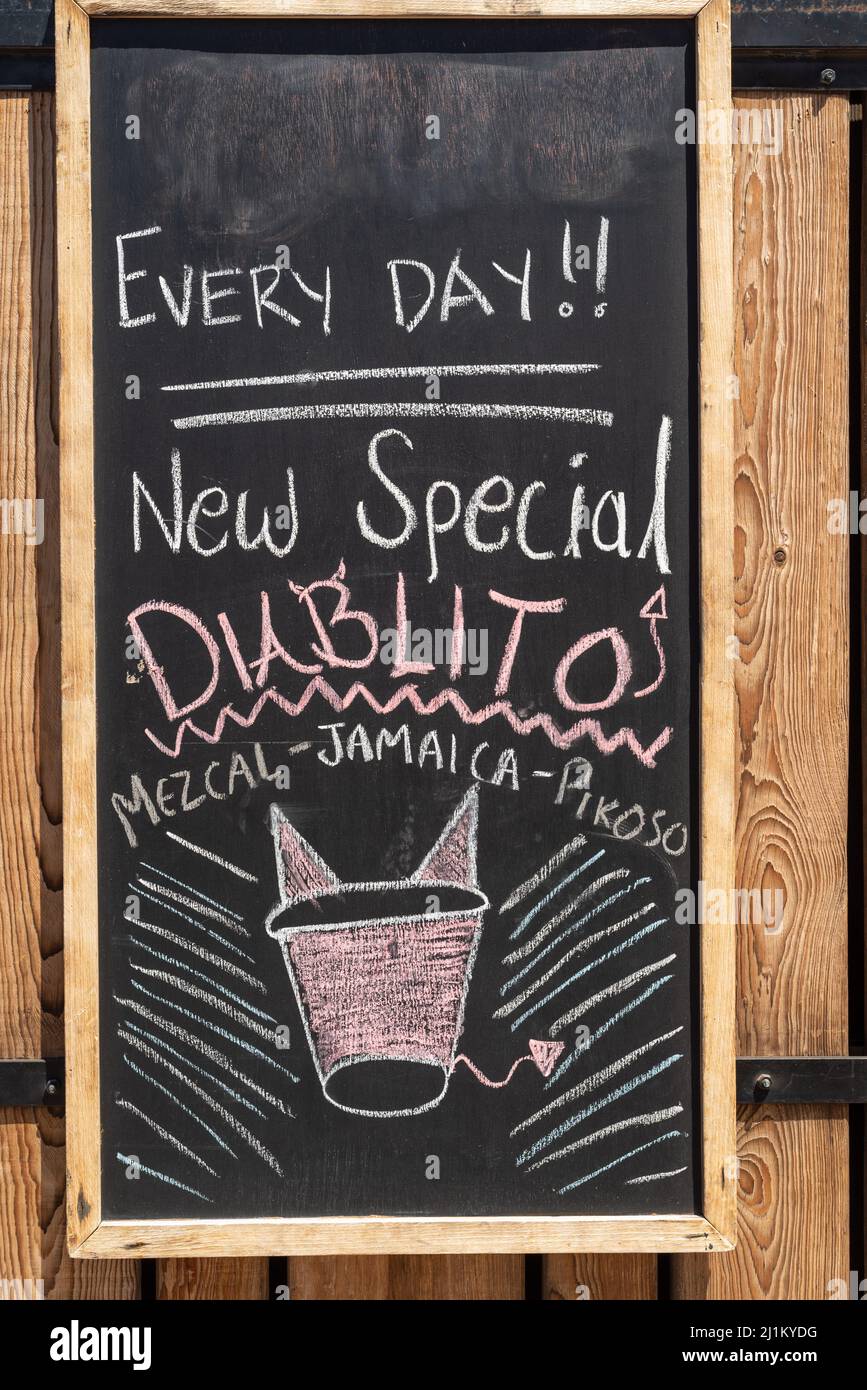 EVERY DAY!!
New Special
DIABLITO
MEZCAL-JAMAICA-PIKOSO
a
alamy
Image ID: 2J1KYDG
www.alamy.com